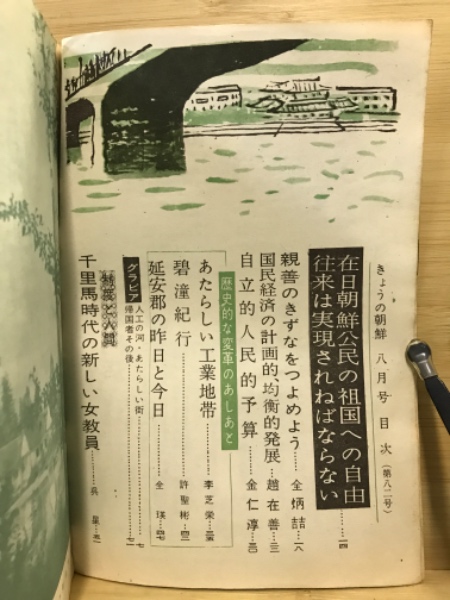 きょうの朝鮮 八月号 目次 (第八二号)
在日朝鮮公民の祖国への自由
往来は実現されねばならない………一四
親善のきずなをつよめよう………全炳詰…一八
国民経済の計画的均衡的発展…趙在善…三
自立的人民的予算………金仁淳…三〇
歴史的な変革のあしあと
あたらしい工業地帯………李芝榮…三
碧潼紀行………許聖彬…四三
延安郡の昨日と今日………全瑛…四七
グラビア 人工の河・あたらしい街………七
帰国者その後………七二
千里馬時代の新しい女教員………呉